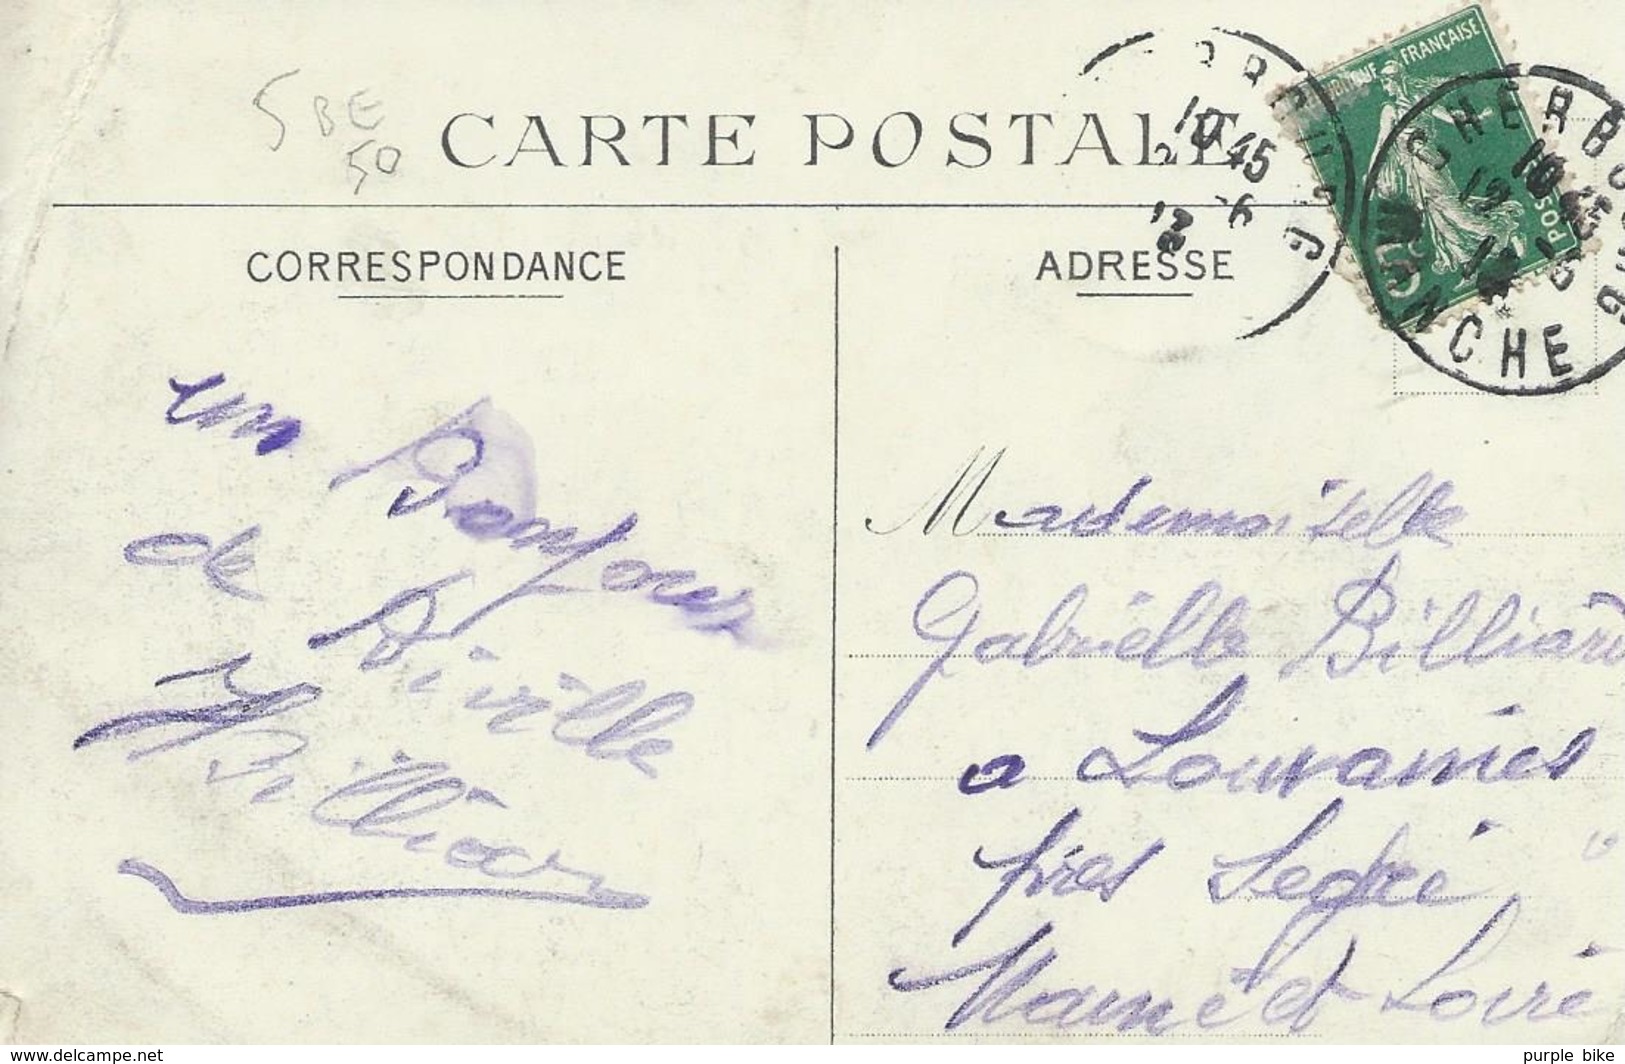 5 BE
50
CARTE POSTALE
CORRESPONDANCE
ADRESSE
RÉPUBLIQUE FRANÇAISE
POSTES
CHERBOURG
10 45
12 - 6
MANCHE
10 45
un Bonjour
de Biville
Billiard
Mademoiselle
Gabrielle Billiard
a Louvaines
près Segré
Maine et Loire
www.delcampe.net
purple bike